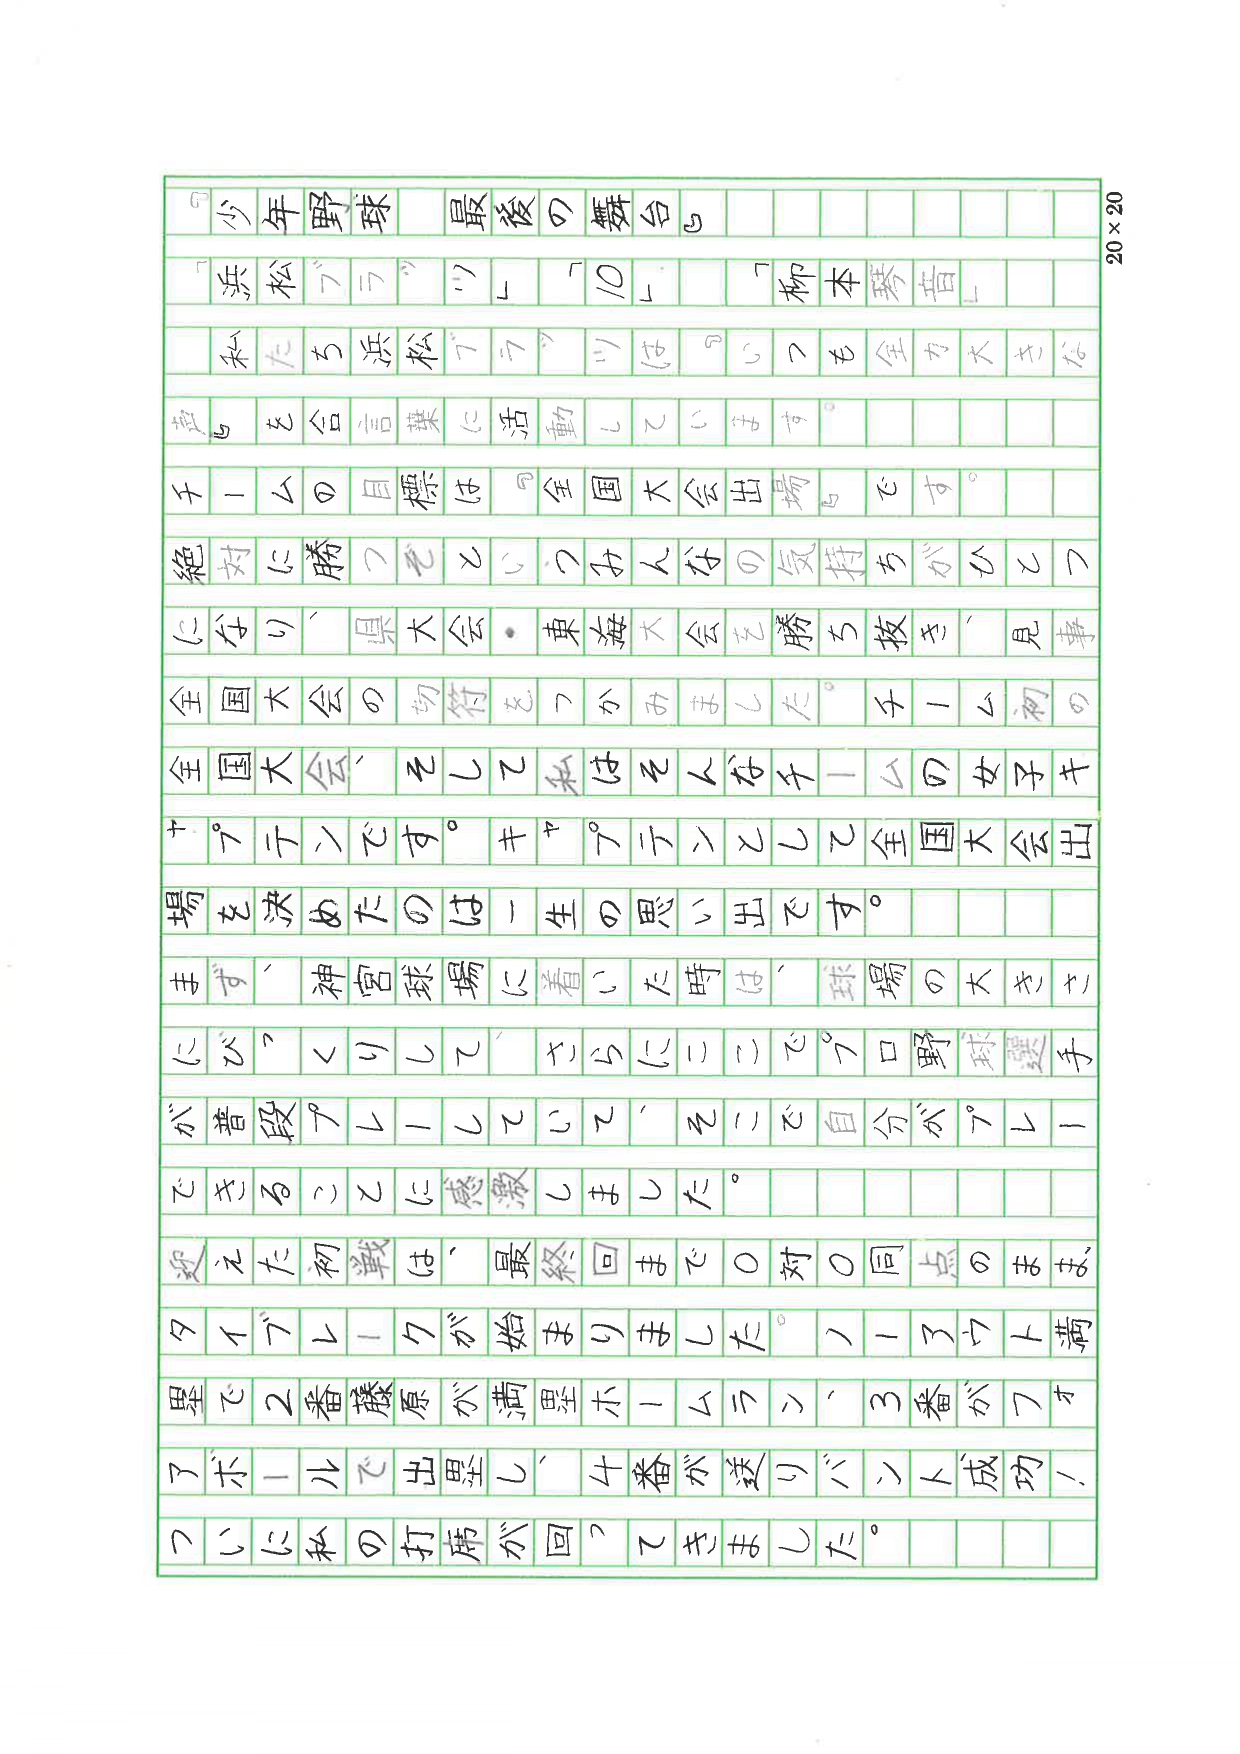 『少年野球　最後の舞台』
「浜松ブラッツ」「10」　「柳本琴音」
私たち浜松ブラッツは『いつも全力大きな
声』を合言葉に活動しています。
チームの目標は『全国大会出場』です。
絶対に勝つぞというみんなの気持ちがひとつ
になり、県大会・東海大会を勝ち抜き、見事
全国大会の切符をつかみました。チーム初の
全国大会、そして私はそんなチームの女子キ
ャプテンです。キャプテンとして全国大会出
場を決めたのは一生の思い出です。
まず、神宮球場に着いた時は、球場の大きさ
にびっくりして、さらにここでプロ野球選手
が普段プレーしていて、そこで自分がプレー
できることに感激しました。
迎えた初戦は、最終回まで0対0同点のまま、
タイブレークが始まりました。ノーアウト満
塁で2番藤原が満塁ホームラン、3番がフォ
アボールで出塁し、4番が送りバント成功！
ついに私の打席が回ってきました。
20×20